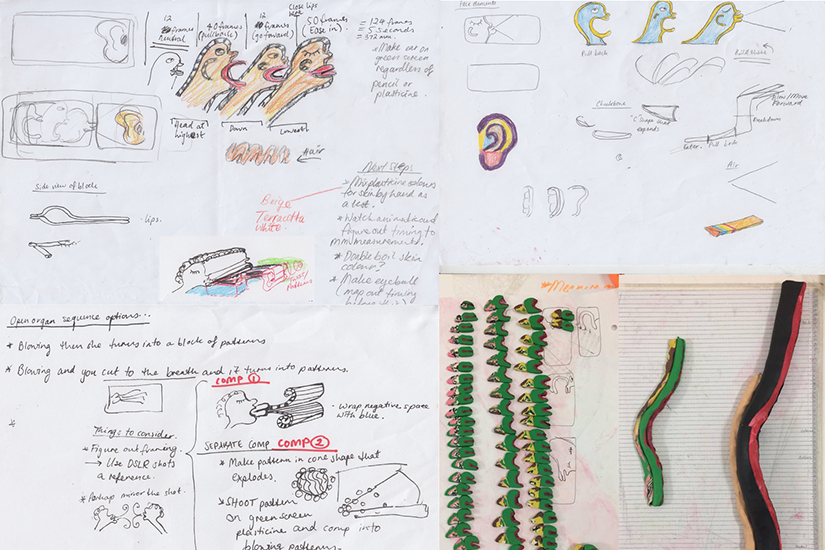 12
frames
neutral
40 frames
(pull back)
12
frames
(go forward)
Close lips
here
(50 frames
Ease in)
= 124 frames
= 5 seconds
= 372 mm.
* Make all on
green screen
regardless of
pencil or
plasticine.
Head at
highest
Down
Lowest
Hair
Side view of block
- lips.
Beige
Terracotta
White.
Next Steps
* Mix plasticine colours
for skin by hand as
a test.
* Watch animatic and
figure out timing to
mm measurements.
* Double boil skin
colour?
* Make eyeball
map out timing
Pull back
Cheekbone
"C" shape that
expands
forward
Pull back
Air
Open organ sequence options..
* Blowing then she turns into a block of patterns
* Blowing and you cut to the breath and it turns into patterns.
COMP 1
- wrap negative space
with blue.
Things to consider.
* Figure out framing.
→ Use DSLR shots
a reference.
* Perhap mirror the shot.
SEPARATE COMP COMP 2
* Make pattern in cone shape that
explodes.
* SHOOT pattern
on green screen
plasticine and comp into
blowing patterns.